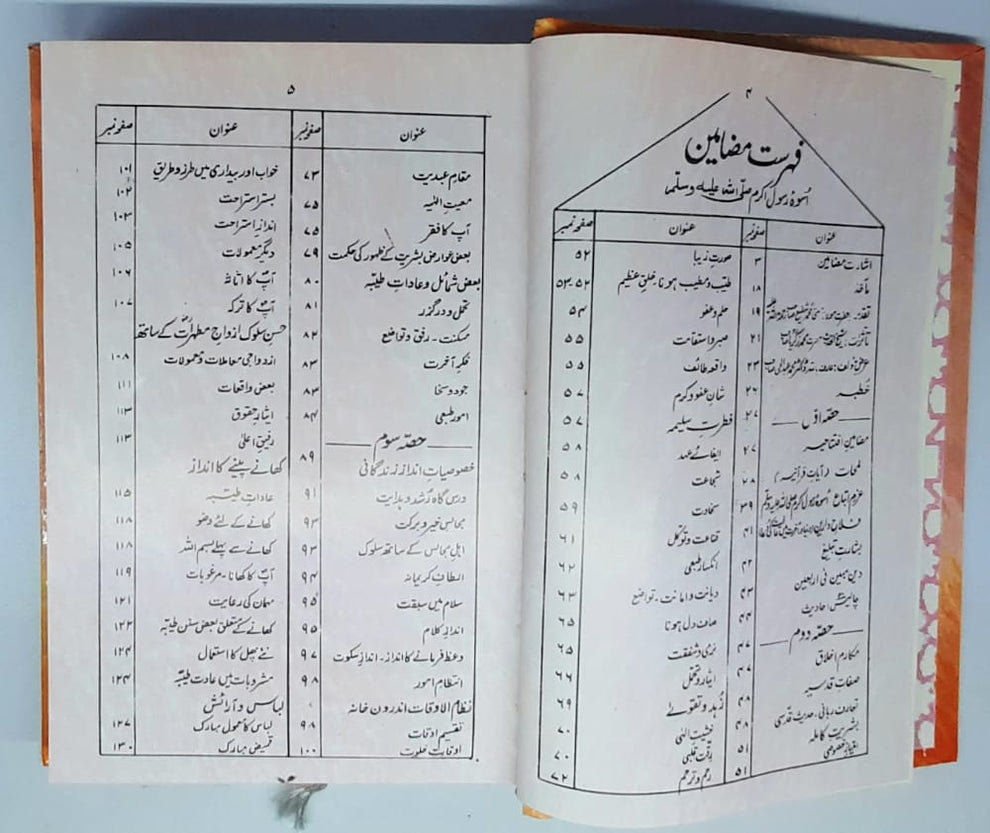 ۴
فہرست مضامین
اسوۂ رسول اکرم صلی اللہ علیہ وسلم
عنوان صفحہ نمبر
اشارت مضامین ۳
مآخذ ۱۸
۱۹
۲۱
۲۳
خطبہ ۲۶
حصّہ اوّل ۲۷
مضامین افتتاحیہ ۲۷
لمحات (آیاتِ قرآنیہ) ۲۸
عزم اتباع اسوۂ رسول اکرم صلی اللہ علیہ وسلم ۳۹
۴۱
بشارت تبلیغ ۴۲
دین مبین فی اربعین ۴۳
چالیس احادیث ۴۴
حصّہ دوم
مکارم اخلاق ۴۷
صفات قدسیہ ۴۷
تعارف ربانی، حدیث قدسی ۴۸
بشریت کاملہ ۴۸
امتیاز خصوصی ۵۱
عنوان صفحہ نمبر
صورت زیبا ۵۲
طیّب و مطیّب ہونا۔ خلق عظیم ۵۲، ۵۳
حلم و عفو ۵۴
صبر و استقامت ۵۵
واقعہ طائف ۵۵
شان عفو و کرم ۵۷
فطرتِ سلیمہ ۵۷
ایفائے عہد ۵۸
شجاعت ۵۸
سخاوت ۵۹
قناعت و توکل ۶۱
انکسار طبعی ۶۲
دیانت و امانت۔ تواضع ۶۳
صاف دل ہونا ۶۵
نرمی و شفقت ۶۵
ایثار و تحمل ۶۶
زُہد و تقویٰ ۶۹
خشیت الٰہی ۷۰
رقت قلبی ۷۰
رحم و ترحم ۷۲
۵
عنوان صفحہ نمبر
مقامِ عبدیت ۷۳
معیتِ الٰہیہ ۷۵
آپ کا فقر ۷۵
بعض عوارض بشریت کے ظہور کی حکمت ۷۹
بعض شمائل و عاداتِ طیّبہ ۸۰
تحمل و درگزر ۸۱
مسکنت۔ رفق و تواضع ۸۲
فکرِ آخرت ۸۳
جود و سخا ۸۳
امور طبعی ۸۴
حصّہ سوم
خصوصیاتِ اندازِ زندگانی ۸۹
درس گاہِ رُشد و ہدایت ۹۱
مجالسِ خیر و برکت ۹۳
اہلِ مجالس کے ساتھ سلوک ۹۳
الطافِ کریمانہ ۹۴
سلام میں سبقت ۹۵
اندازِ کلام ۹۵
وعظ فرمانے کا انداز۔ اندازِ سکوت ۹۷
انتظامِ امور ۹۸
نظام الاوقات اندرونِ خانہ
تقسیم اوقات ۹۸
اوقات خلوت ۱۰۰
عنوان صفحہ نمبر
خواب اور بیداری میں طرز و طریق ۱۰۱
بستر استراحت ۱۰۲
اندازِ استراحت ۱۰۳
دیگر معمولات ۱۰۵
آپؐ کا اثاثہ ۱۰۶
آپؐ کا ترکہ ۱۰۷
حسن سلوک ازواجِ مطہراتؓ کے ساتھ
ازدواجی معاملات و معمولات ۱۰۸
بعض واقعات ۱۱۱
ایثارِ حقوق ۱۱۳
رفیقِ اعلیٰ ۱۱۳
کھانے پینے کا انداز
عاداتِ طیّبہ ۱۱۵
کھانے کے لئے وضو ۱۱۸
کھانے سے پہلے بسم اللہ ۱۱۸
آپؐ کا کھانا۔ مرغوبات ۱۱۹
مہمان کی رعایت ۱۲۱
کھانے کے متعلق بعض سنن طیّبہ ۱۲۲
نئے پھل کا استعمال ۱۲۴
مشروبات میں عادت طیّبہ ۱۲۴
لباس و آرائش
لباس کا معمول مبارک ۱۲۷
قمیض مبارک ۱۳۰